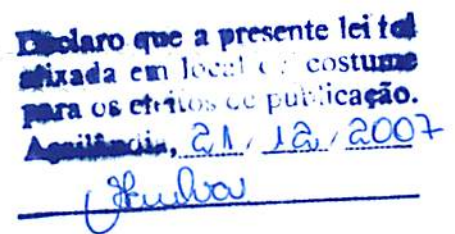 Declaro que a presente lei foi
afixada em local de costume
para os efeitos de publicação.
Aguilândia, 21 / 12 / 2007